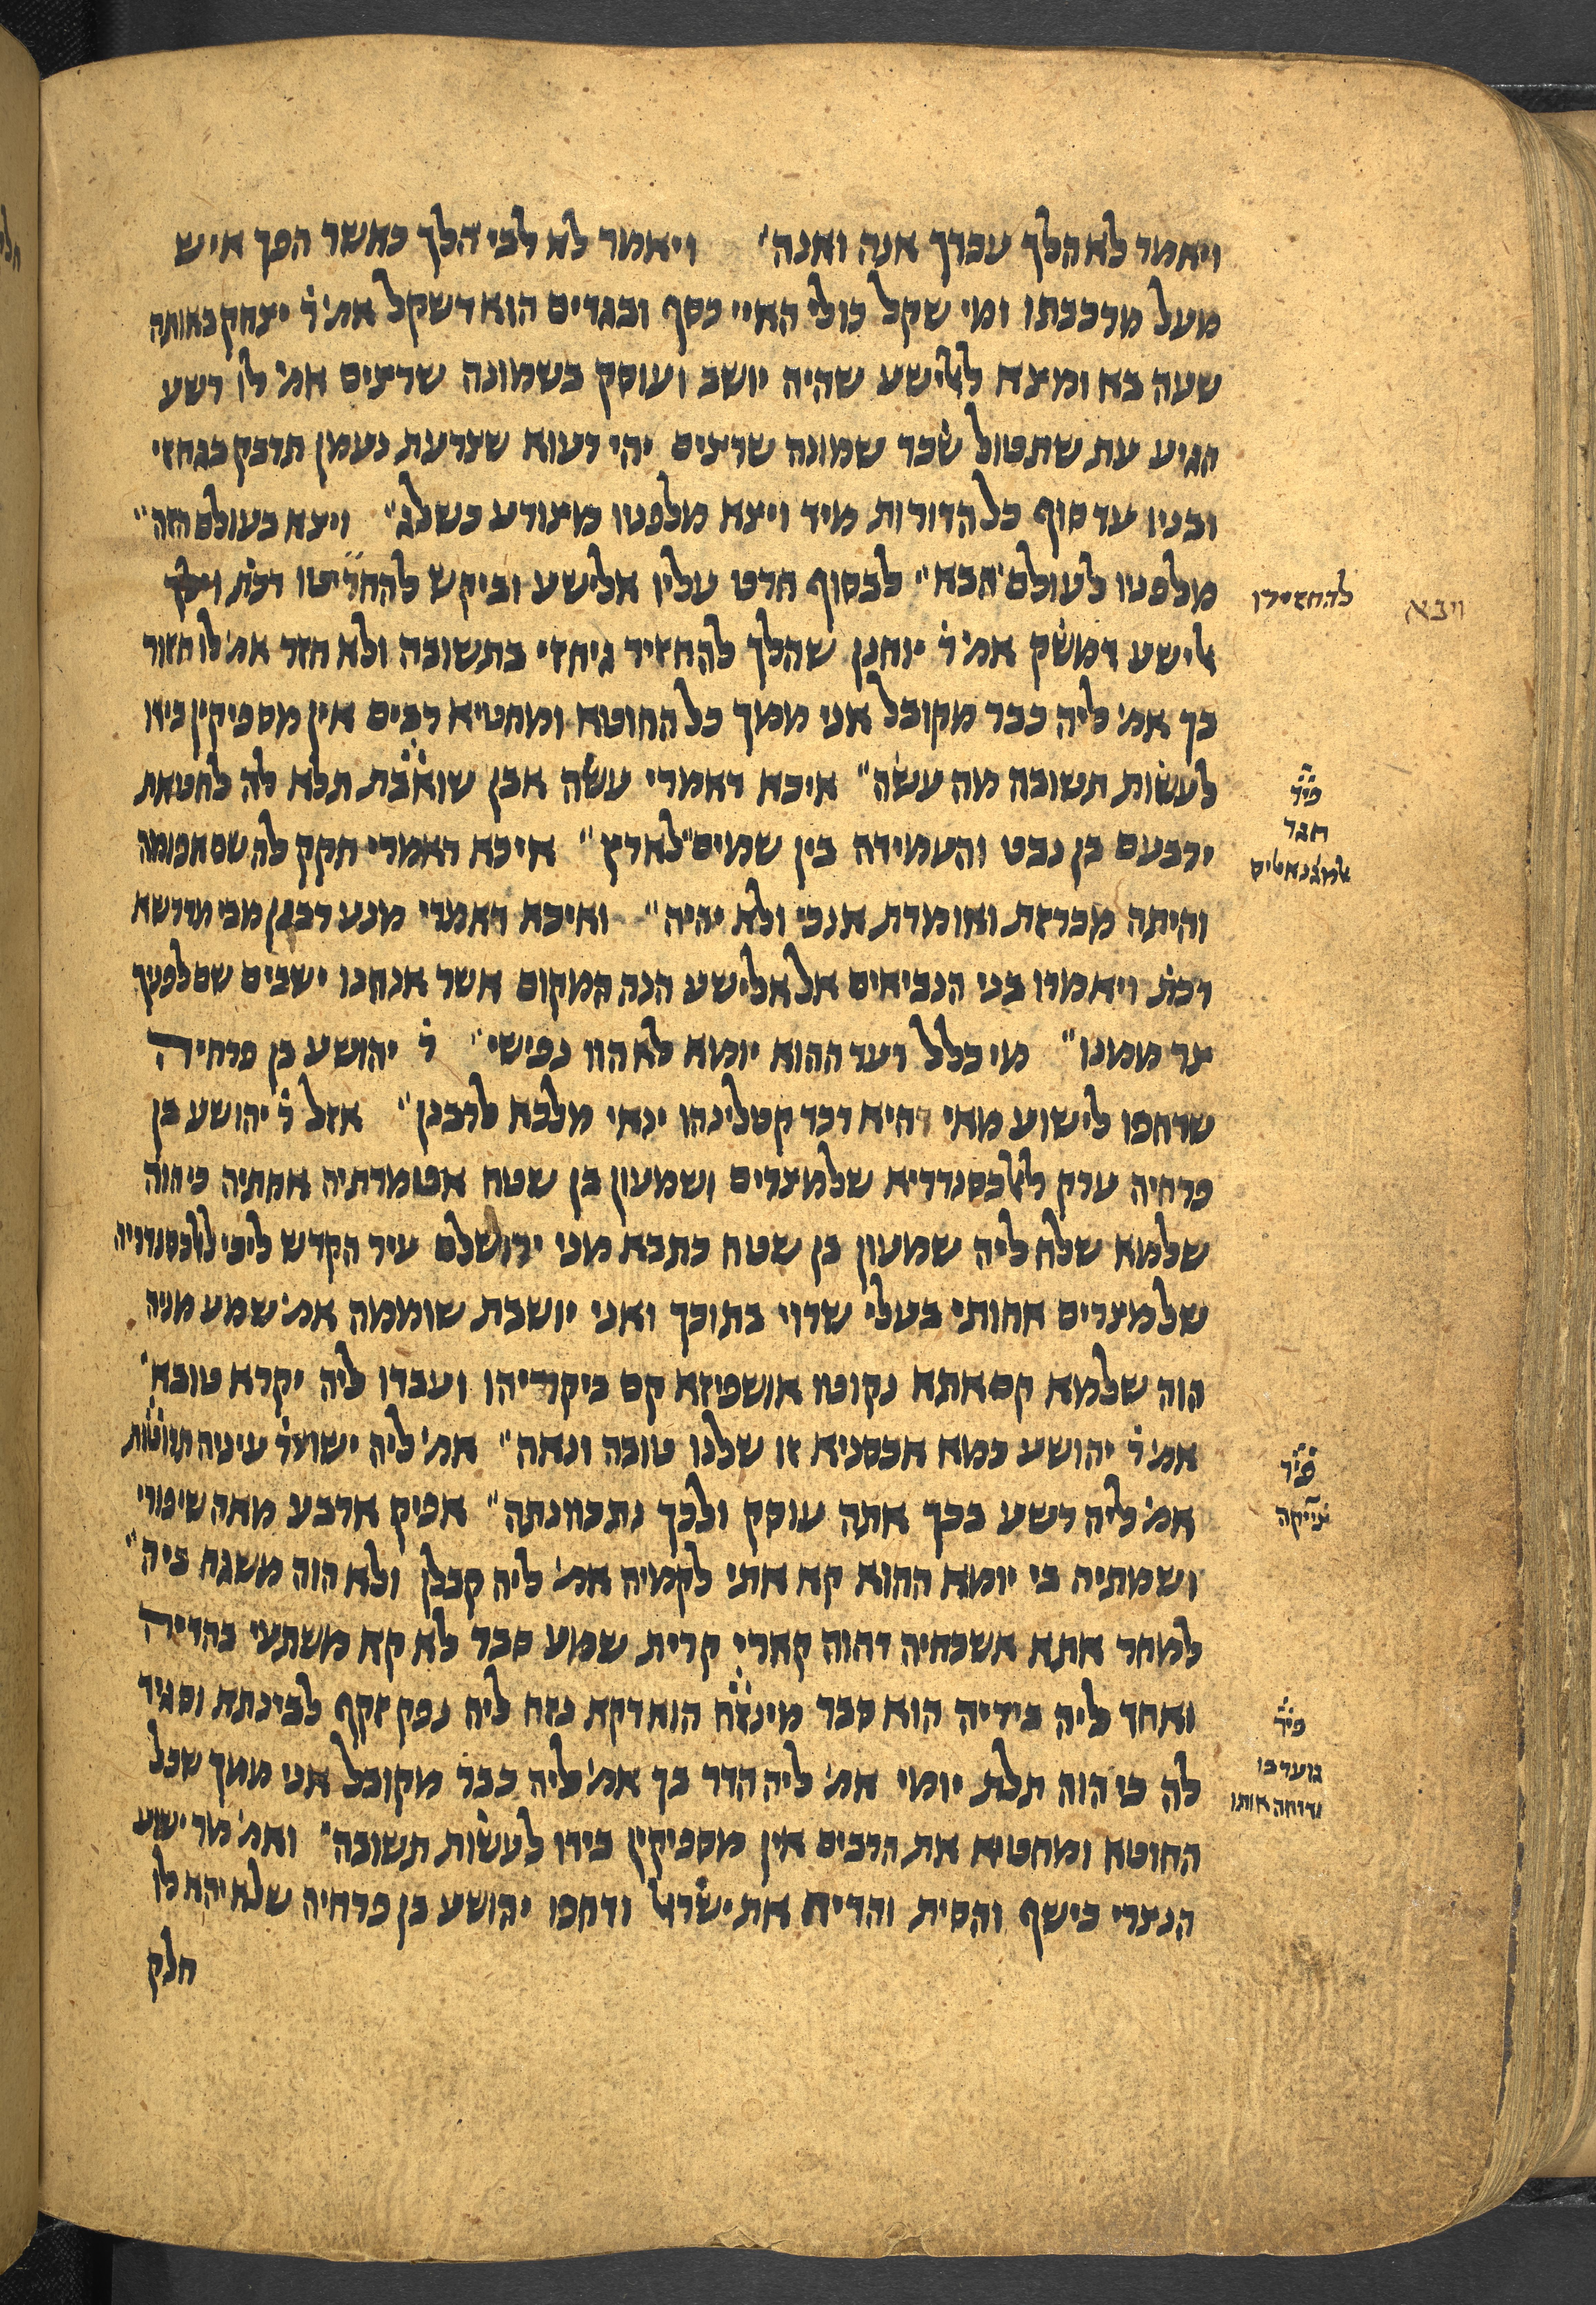 ויאמר לא הלך עבדך אנה ואנה׳ ויאמר לא לבי הלך כאשר הפך איש
מעל מרכבתו ומי שקל כולי האיי כסף ובגדים הוא דשקל אמ׳ ר׳ יצחק באותה
שעה בא ומצא לאלישע שהיה יושב ועוסק בשמונה שרצים אמ׳ לו רשע
הגיע עת שתטול שכר שמונה שרצים יהי רעוא שצרעת נעמן תדבק בגחזי
ובניו עד סוף כל הדורות מיד ויצא מלפניו מצורע כשלג״ ויצא בעולם הזה״
מלפניו לעולם הבא״ לבסוף חרט עליו אלישע וביקש להחריטו דכת׳ וילך
להחזירו
ויבא
אלישע דמשק אמ׳ ר׳ יוחנן שהלך להחזיר גיחזי בתשובה ולא חזר אמ׳ לו חזור
בך אמ׳ ליה כבר מקובל אני ממך כל החוטא ומחטיא רבים אין מספיקין בידו
לעשות תשובה מה עשה״ איכא דאמרי עשה אבן שואבת תלא לה לחטאת
פי׳
חגר
אלמגנאטיס
ירבעם בן נבט והעמידה בין שמים לארץ״ איכא דאמרי חקק לה שם אפומה
והיתה מכרזת ואומרת אנכי ולא יהיה״ ואיכא דאמרי מנע רבנן מבי מדרשא
דכת׳ ויאמרו בני הנביאים אל אלישע הנה המקום אשר אנחנו ישבים שם לפניך
צר ממנו״ מי כלל דעד ההוא יומא לא הוו נפישי״ ר׳ יהושע בן פרחיה
שדחפו לישוע מאי היא דכד קטלינהו ינאי מלכא לרבנן״ אזל ר׳ יהושע בן
פרחיה ערק לאלכסנדריא שלמצרים ושמעון בן שטח אטמרתיה אחתיה כי הוה
שלמא שלח ליה שמעון בן שטח כתבא מני ירושלם עיר הקדש ליכי אלכסנדריה
שלמצרים אחותי בעלי שרוי בתוכך ואני יושבת שוממה אמ׳ שמע מניה
הוה שלמא קם אתא נקוט אושפיזא קם ביקריהו ועבדו ליה יקרא טובא׳
אמ׳ ר׳ יהושע כמא אכסניא זו שלנו טובה ונאה״ אמ׳ ליה ישו מר׳ עיניה תרוטות
פי׳
צ׳ייקה
אמ׳ ליה רשע בכך אתה עוסק ולכך נתכוונתה״ אפיק ארבע מאה שיפורי
ושמתיה בי יומא ההוא קא אתי לקמיה אמ׳ ליה קבלן ולא הוה משגח ביה״
למחר אתא אשכחיה דהוה קארי קרית שמע סבר לא קא משתעי בהדיה
ואחד ליה בידיה הוא סבר מינזח הוא דקא נזח ליה נפק זקף לבינתא וסגיד
פי׳
גוער בו
ודוחה אותו
לה כי הוה תלת יומי אמ׳ ליה הדר בך אמ׳ ליה כבר מקובל אני ממך שכל
החוטא ומחטיא את הרבים אין מספיקין בידו לעשות תשובה״ ואמ׳ מר ישוע
הנצרי כישף והסית והדיח את ישראל ודחפו יהושע בן פרחיה שלא יהא לו
חלק